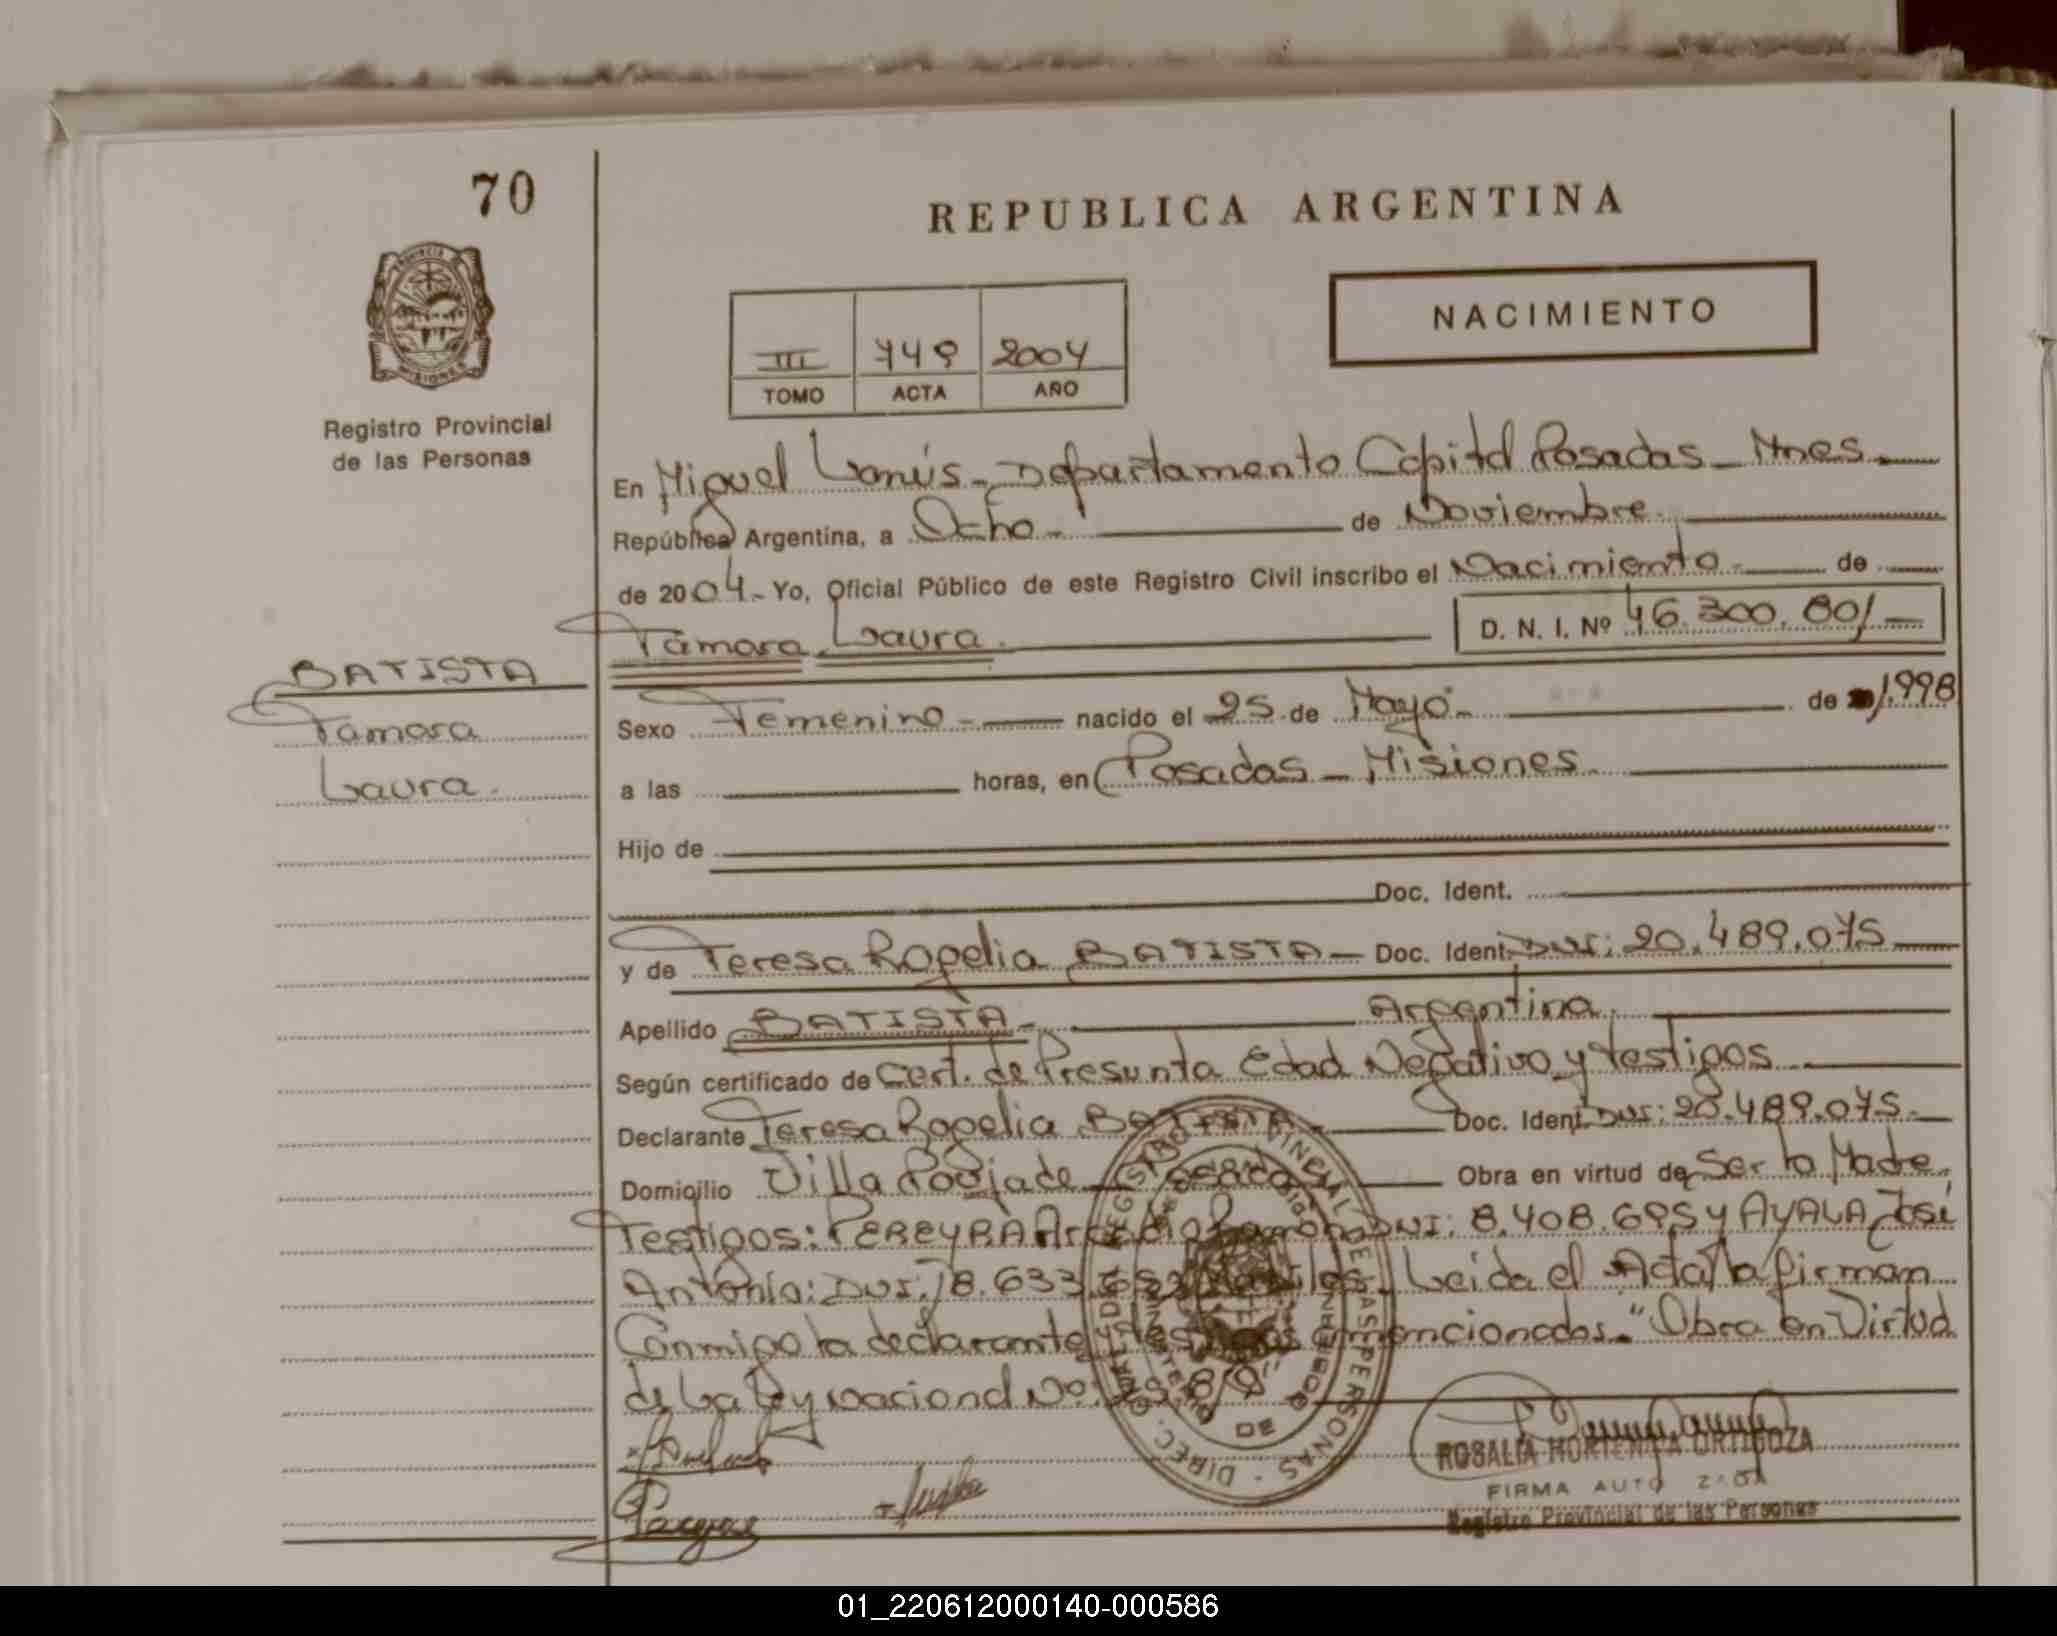 70
REPUBLICA ARGENTINA
NACIMIENTO
III 749 2004
TOMO ACTA AÑO
PROVINCIA DE
MISIONES
Registro Provincial
de las Personas
En Miguel Lanús - Departamento Capital Posadas - Mnes.
República Argentina, a Ocho - de Noviembre.
de 2004 - Yo, Oficial Público de este Registro Civil inscribo el Nacimiento - de
Tamara Laura. D. N. I. Nº 46.300.801
BATISTA
Tamara
Laura.
Sexo Femenino - nacido el 25 de Mayo - de 1.998
a las horas, en Posadas - Misiones.
Hijo de
Doc. Ident.
y de Teresa Rogelia BATISTA - Doc. Ident. DNI: 20.489.075
Apellido BATISTA - Argentina.
Según certificado de Cert. de Presunta Edad Negativo y testigos
Declarante Teresa Rogelia BATISTA - Doc. Ident. DNI: 20.489.075 -
Domicilio Villa Poujade - Posadas Obra en virtud de Ser la Madre.
Testigos: PEREYRA Ramón DNI: 8.408.695 y AYALA José
Antonio: DNI: 18.633. Leida el Acta la firman
Conmigo la declarante y testigos mencionados. "Obra en Virtud
de La Ley nacional No:
ROSALIA HORTENCIA ORTIGOZA
FIRMA AUTORIZADA
Registro Provincial de las Personas
DIREC. REGISTRO PROVINCIAL DE LAS PERSONAS
MINISTERIO DE GOBIERNO
01_220612000140-000586